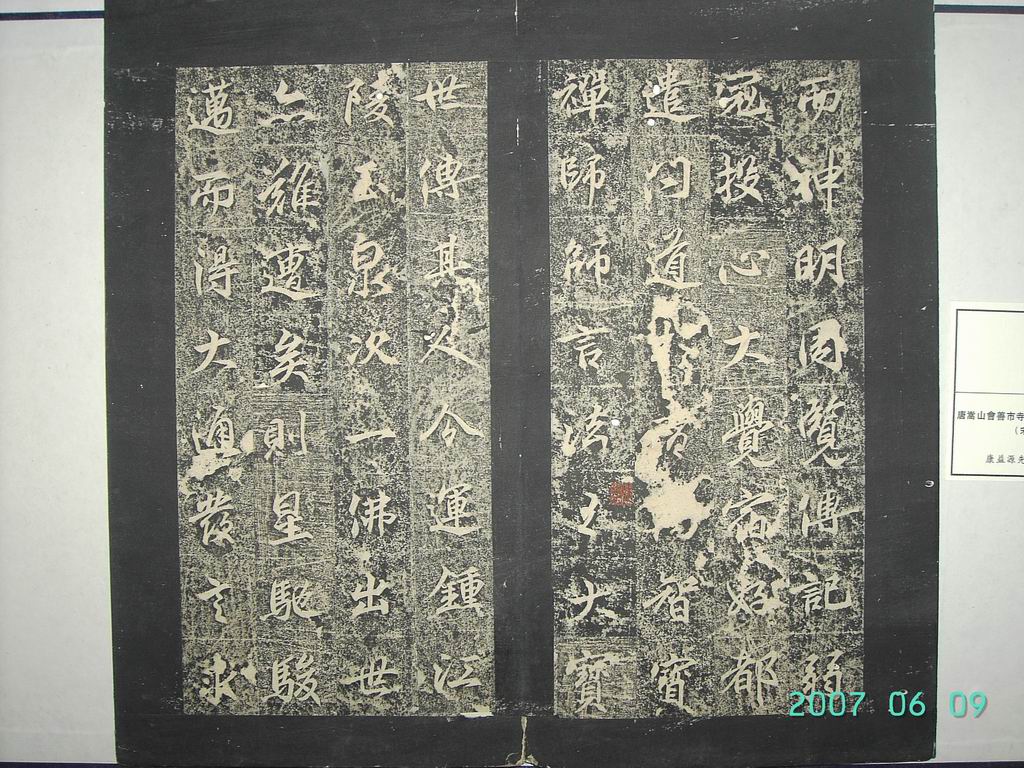 而神明周覽傳記弱
冠投心大覺宿好都
遣問道智
禪師師言法王大寶
世傳其人今運鍾江
陵玉泉次一佛出世
亦難遭矣則星馳駿
邁而得大通發言求
唐嵩山會善市寺
康益源先
2007 06 09